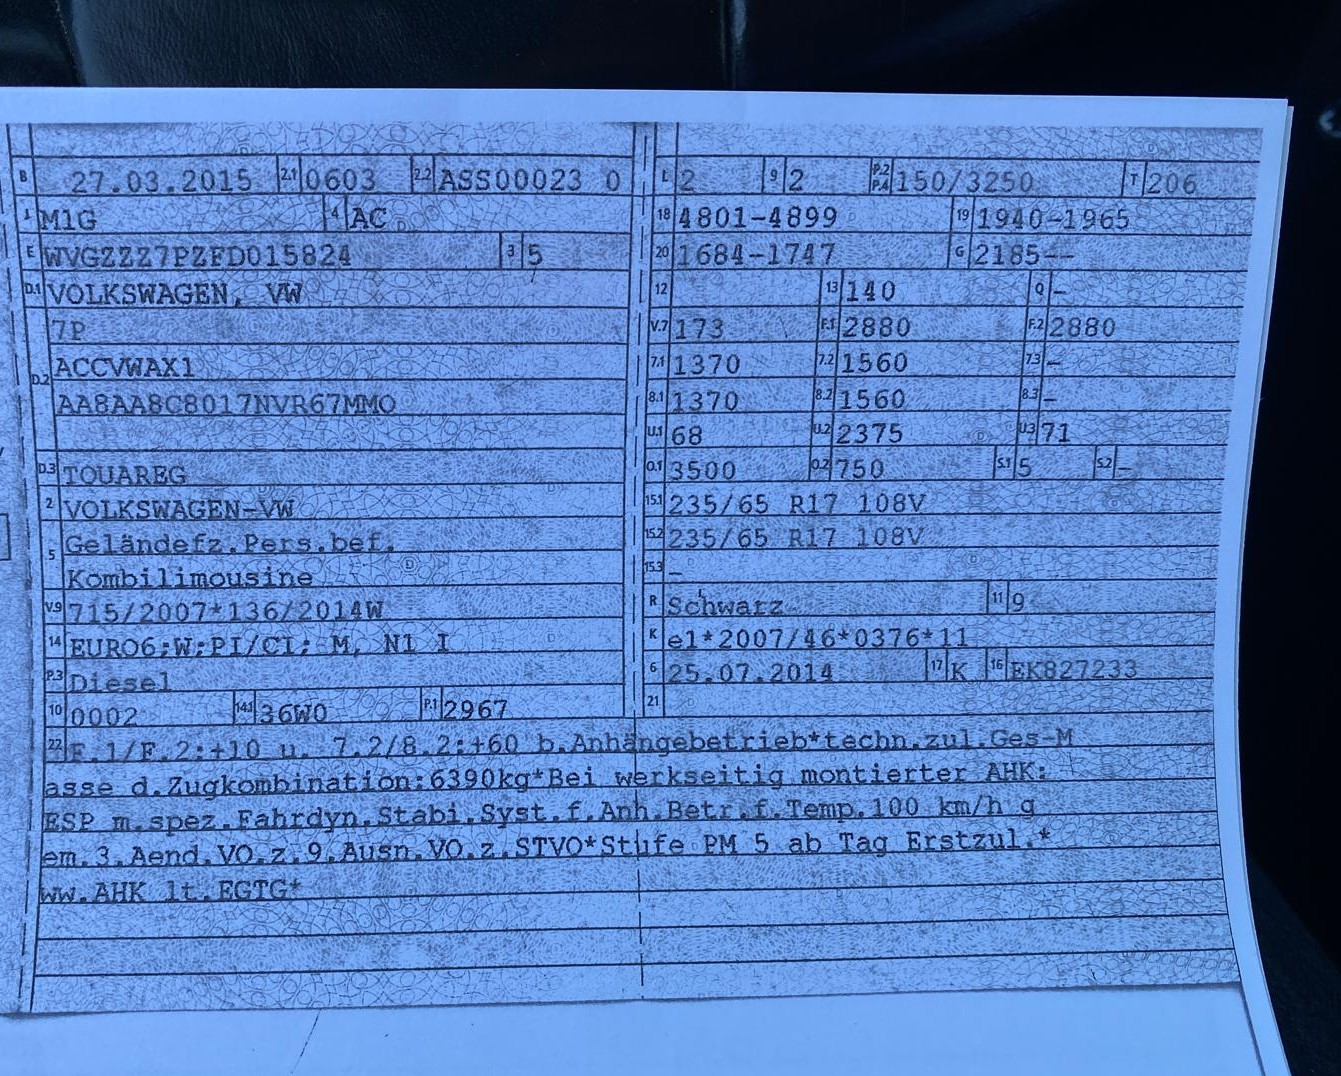 B 27.03.2015 2.1 0603 2.2 ASS00023 0
J M1G 4 AC
E WVGZZZ7PZFD015824 3 5
D.1 VOLKSWAGEN, VW
7P
D.2 ACCVWAX1
AA8AA8C8017NVR67MM0
D.3 TOUAREG
2 VOLKSWAGEN-VW
5 Geländefz.Pers.bef.
Kombilimousine
V.9 715/2007*136/2014W
14 EURO6;W;PI/CI; M, N1 I
P.3 Diesel
10 0002 14.1 36W0 P.1 2967
L 2 9 2 P.2 P.4 150/3250 T 206
18 4801-4899 19 1940-1965
20 1684-1747 G 2185--
12 13 140 Q -
V.7 173 F.1 2880 F.2 2880
7.1 1370 7.2 1560 7.3 -
8.1 1370 8.2 1560 8.3 -
U.1 68 U.2 2375 U.3 71
O.1 3500 O.2 750 S.1 5 S.2 -
15.1 235/65 R17 108V
15.2 235/65 R17 108V
15.3 -
R Schwarz 11 9
K e1*2007/46*0376*11
6 25.07.2014 17 K 16 EK827233
21
22 F.1/F.2:+10 u. 7.2/8.2:+60 b.Anhängebetrieb*techn.zul.Ges-M
asse d.Zugkombination:6390kg*Bei werkseitig montierter AHK:
ESP m.spez.Fahrdyn.Stabi.Syst.f.Anh.Betr.f.Temp.100 km/h g
em.3.Aend.VO.z.9.Ausn.VO.z.STVO*Stufe PM 5 ab Tag Erstzul.*
ww.AHK lt.EGTG*